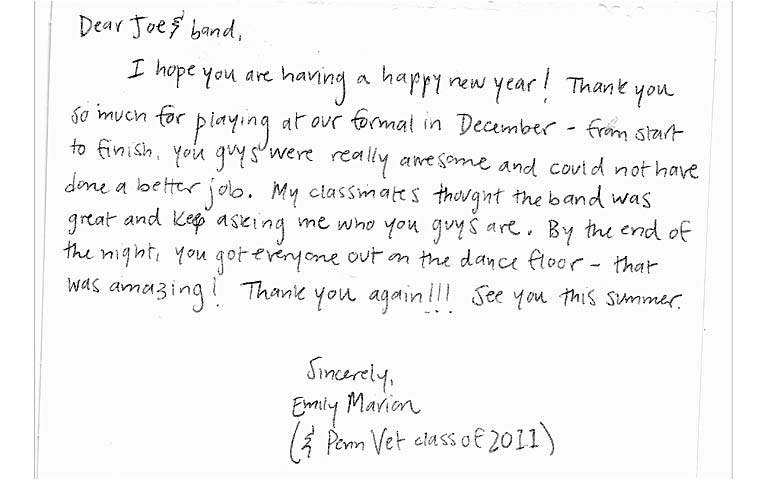 Dear Joe & band,
I hope you are having a happy new year! Thank you
so much for playing at our formal in December - from start
to finish, you guys were really awesome and could not have
done a better job. My classmates thought the band was
great and keep asking me who you guys are. By the end of
the night, you got everyone out on the dance floor - that
was amazing! Thank you again!!! See you this summer.
Sincerely,
Emily Marion
(& Penn Vet class of 2011)